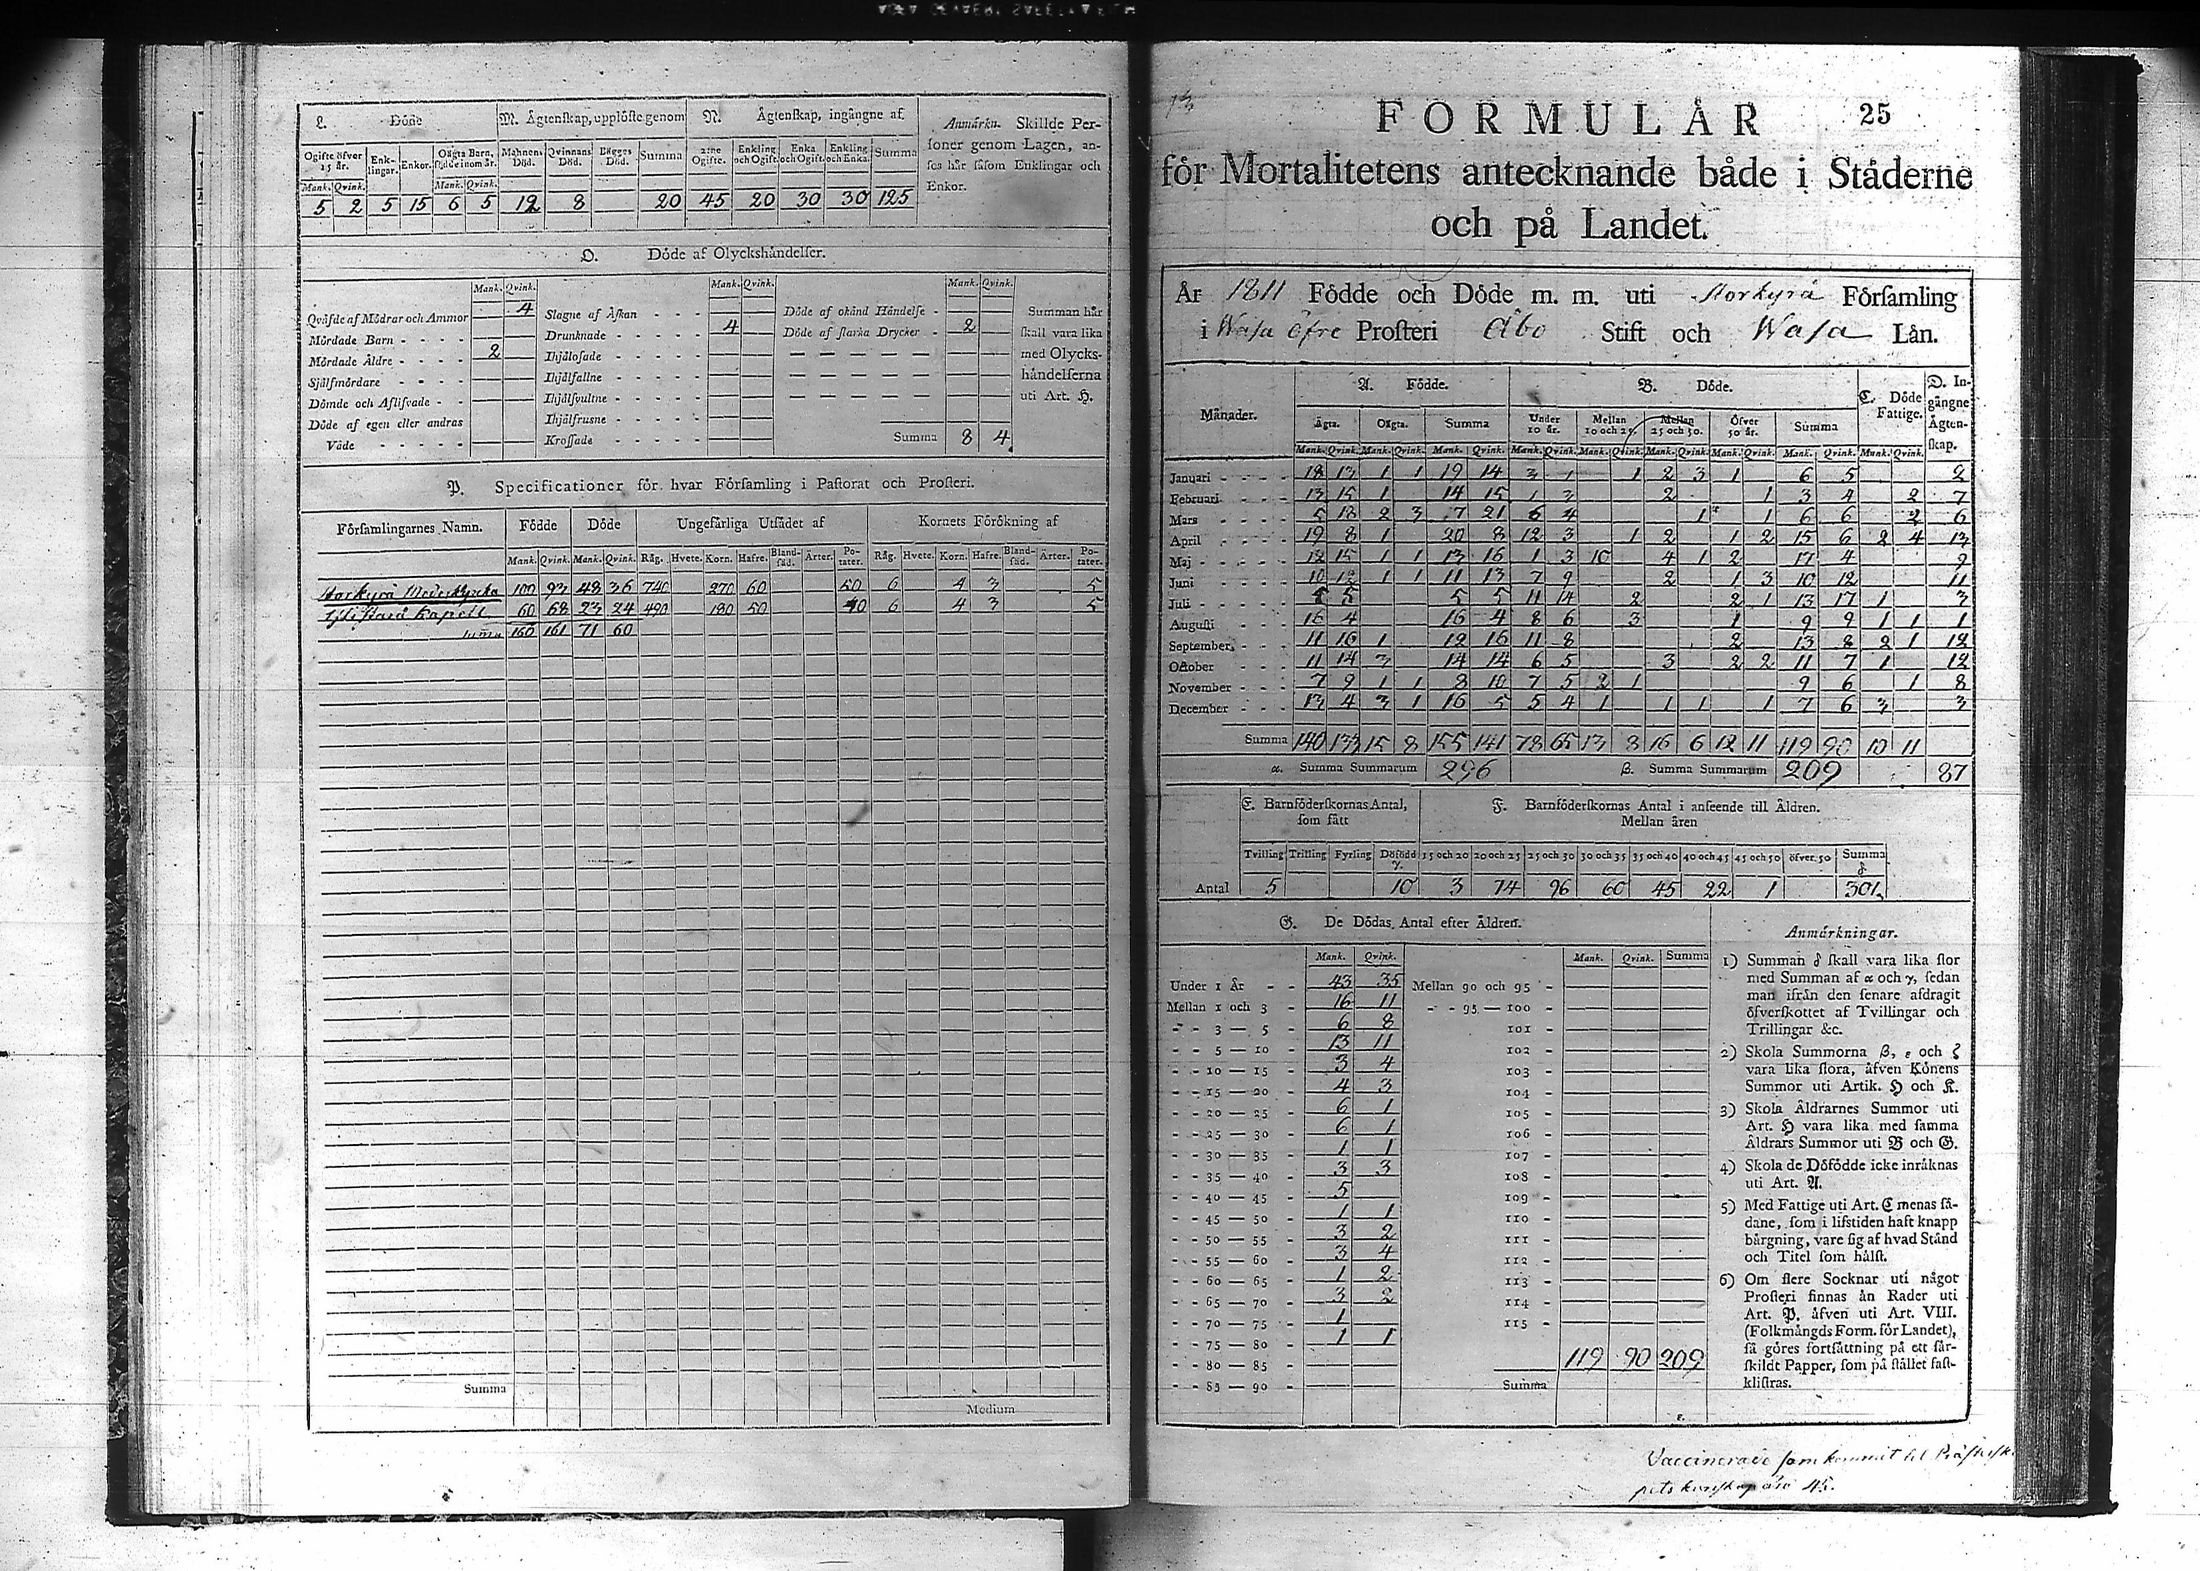 L. Döde
M. Ågtenskap, upplöste genom
N. Ågtenskap, ingångne af
Ogifte öfver 15 år. Enklingar. Enkor. Oågta Barn, födde inom år. Mannens Död. Qvinnans Död. Bågges Död. Summa 2:ne Ogifte. Enkling och Ogift. Enka och Ogift. Enkling och Enka. Summa
Mank. Qvink. Mank. Qvink.
5 2 5 15 6 5 12 8 20 45 20 30 30 125
Anmärkn. Skillde Per-
soner genom Lagen, an-
ses här såsom Enklingar och
Enkor.
O. Döde af Olyckshändelser.
Mank. Qvink. Mank. Qvink. Mank. Qvink.
Qväfde af Mödrar och Ammor 4
Mördade Barn
Mördade Äldre 2
Självmördare
Dömde och Aflifvade
Döde af egen eller andras
Våde
Slagne af Åskan
Drunknade 4
Ihjälosade
Ihjälfallne
Ihjälsvultne
Ihjälfrusne
Krossade
Döde af okänd Händelse
Döde af starka Drycker 2
Summa 8 4
Summan här
skall vara lika
med Olycks-
händelserna
uti Art. H.
P. Specificationer för hvar Församling i Pastorat och Prosteri.
Församlingarnes Namn. Födde Döde Ungefärliga Utsädet af Kornets Förökning af
Mank. Qvink. Mank. Qvink. Råg. Hvete. Korn. Hafre. Bland-säd. Ärter. Po-tater. Råg. Hvete. Korn. Hafre. Bland-säd. Ärter. Po-tater.
Storkyrå Moderkyrka 100 93 48 36 740 270 60 50 6 4 3 5
Kapell 60 68 23 24 490 180 50 40 6 4 3 5
Summa 160 161 71 60
Summa
Medium
13
25
FORMULÅR
för Mortalitetens antecknande både i Ståderne
och på Landet.
År 1811 Födde och Döde m. m. uti Storkyrå Församling
i Wasa öfre Prosteri Åbo Stift och Wasa Lån.
Månader. A. Födde. B. Döde. C. Döde Fattige. D. Ingångne Ågtenskap.
Ågta. Oågta. Summa Under 10 år. Mellan 10 och 25. Mellan 25 och 50. Öfver 50 år. Summa
Mank. Qvink. Mank. Qvink. Mank. Qvink. Mank. Qvink. Mank. Qvink. Mank. Qvink. Mank. Qvink. Mank. Qvink. Mank. Qvink.
Januari 18 13 1 1 19 14 3 1 1 2 3 1 6 5 2
Februari 13 15 1 14 15 1 3 2 1 3 4 2 7
Mars 5 18 2 3 7 21 6 4 1 1 6 6 2 6
April 19 8 1 20 8 12 3 1 2 1 2 15 6 2 4 13
Maj 12 15 1 1 13 16 1 3 10 4 1 2 17 4 9
Juni 10 12 1 1 11 13 7 9 2 1 3 10 12 11
Juli 5 5 5 5 11 14 2 2 1 13 17 1 3
Augusti 16 4 16 4 8 6 3 1 9 9 1 1 1
September 11 16 1 12 16 11 8 2 13 8 2 1 12
October 11 14 3 14 14 6 5 3 2 2 11 7 1 12
November 7 9 1 1 8 10 7 5 2 1 9 6 1 8
December 13 4 3 1 16 5 5 4 1 1 1 1 7 6 3 3
Summa 140 133 15 8 155 141 78 65 13 8 16 6 12 11 119 90 10 11
α. Summa Summarum 296 β. Summa Summarum 209 87
E. Barnföderskornas Antal, som fått
F. Barnföderskornas Antal i anseende till Åldren.
Mellan åren
Tvilling Trilling Fyrling Döfödd γ. 15 och 20 20 och 25 25 och 30 30 och 35 35 och 40 40 och 45 45 och 50 öfver 50 Summa δ
Antal 5 10 3 74 96 60 45 22 1 301
G. De Dödas Antal efter Åldren.
Mank. Qvink. Mank. Qvink. Summa
Under 1 År 43 35 Mellan 90 och 95
Mellan 1 och 3 16 11 95 — 100
3 — 5 6 8 101
5 — 10 13 11 102
10 — 15 3 4 103
15 — 20 4 3 104
20 — 25 6 1 105
25 — 30 6 1 106
30 — 35 1 1 107
35 — 40 3 3 108
40 — 45 5 109
45 — 50 1 1 110
50 — 55 3 2 111
55 — 60 3 4 112
60 — 65 1 2 113
65 — 70 3 2 114
70 — 75 1 115
75 — 80 1 1
80 — 85 119 90 209
85 — 90 Summa
ε.
Anmärkningar.
1) Summan δ skall vara lika stor
med Summan af α och γ, sedan
man ifrån den senare afdragit
öfverskottet af Tvillingar och
Trillingar &c.
2) Skola Summorna β, ε och ζ
vara lika stora, äfven Könens
Summor uti Artik. H och K.
3) Skola Åldrarnes Summor uti
Art. H vara lika med samma
Åldrars Summor uti B och G.
4) Skola de Döfödde icke inräknas
uti Art. A.
5) Med Fattige uti Art. C menas så-
dane, som i lifstiden haft knapp
bärgning, vare sig af hvad Stånd
och Titel som hälst.
6) Om flere Socknar uti något
Prosteri finnas än Rader uti
Art. P. äfven uti Art. VIII.
(Folkmängds Form. för Landet),
så göres fortsättning på ett sär-
skildt Papper, som på stället fast-
klistras.
Vaccinerade som kommit til
kunskap äro 45.